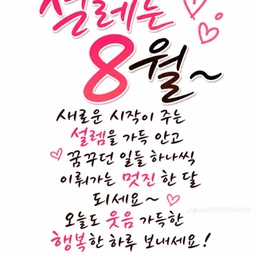 설레는
8월~
새로운 시작이 주는
설렘을 가득 안고
꿈꾸던 일들 하나씩
이뤄가는 멋진 한 달
되세요~
오늘도 웃음 가득한
행복한 하루 보내세요!